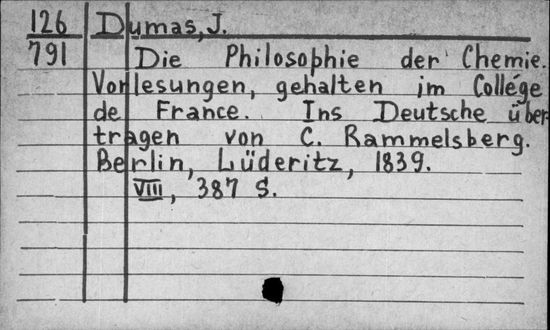 126 Dumas, J.
791 Die Philosophie der Chemie.
Vorlesungen, gehalten im Collége
de France. Ins Deutsche über
tragen von C. Rammelsberg.
Berlin, Lüderitz, 1839.
VIII, 387 S.